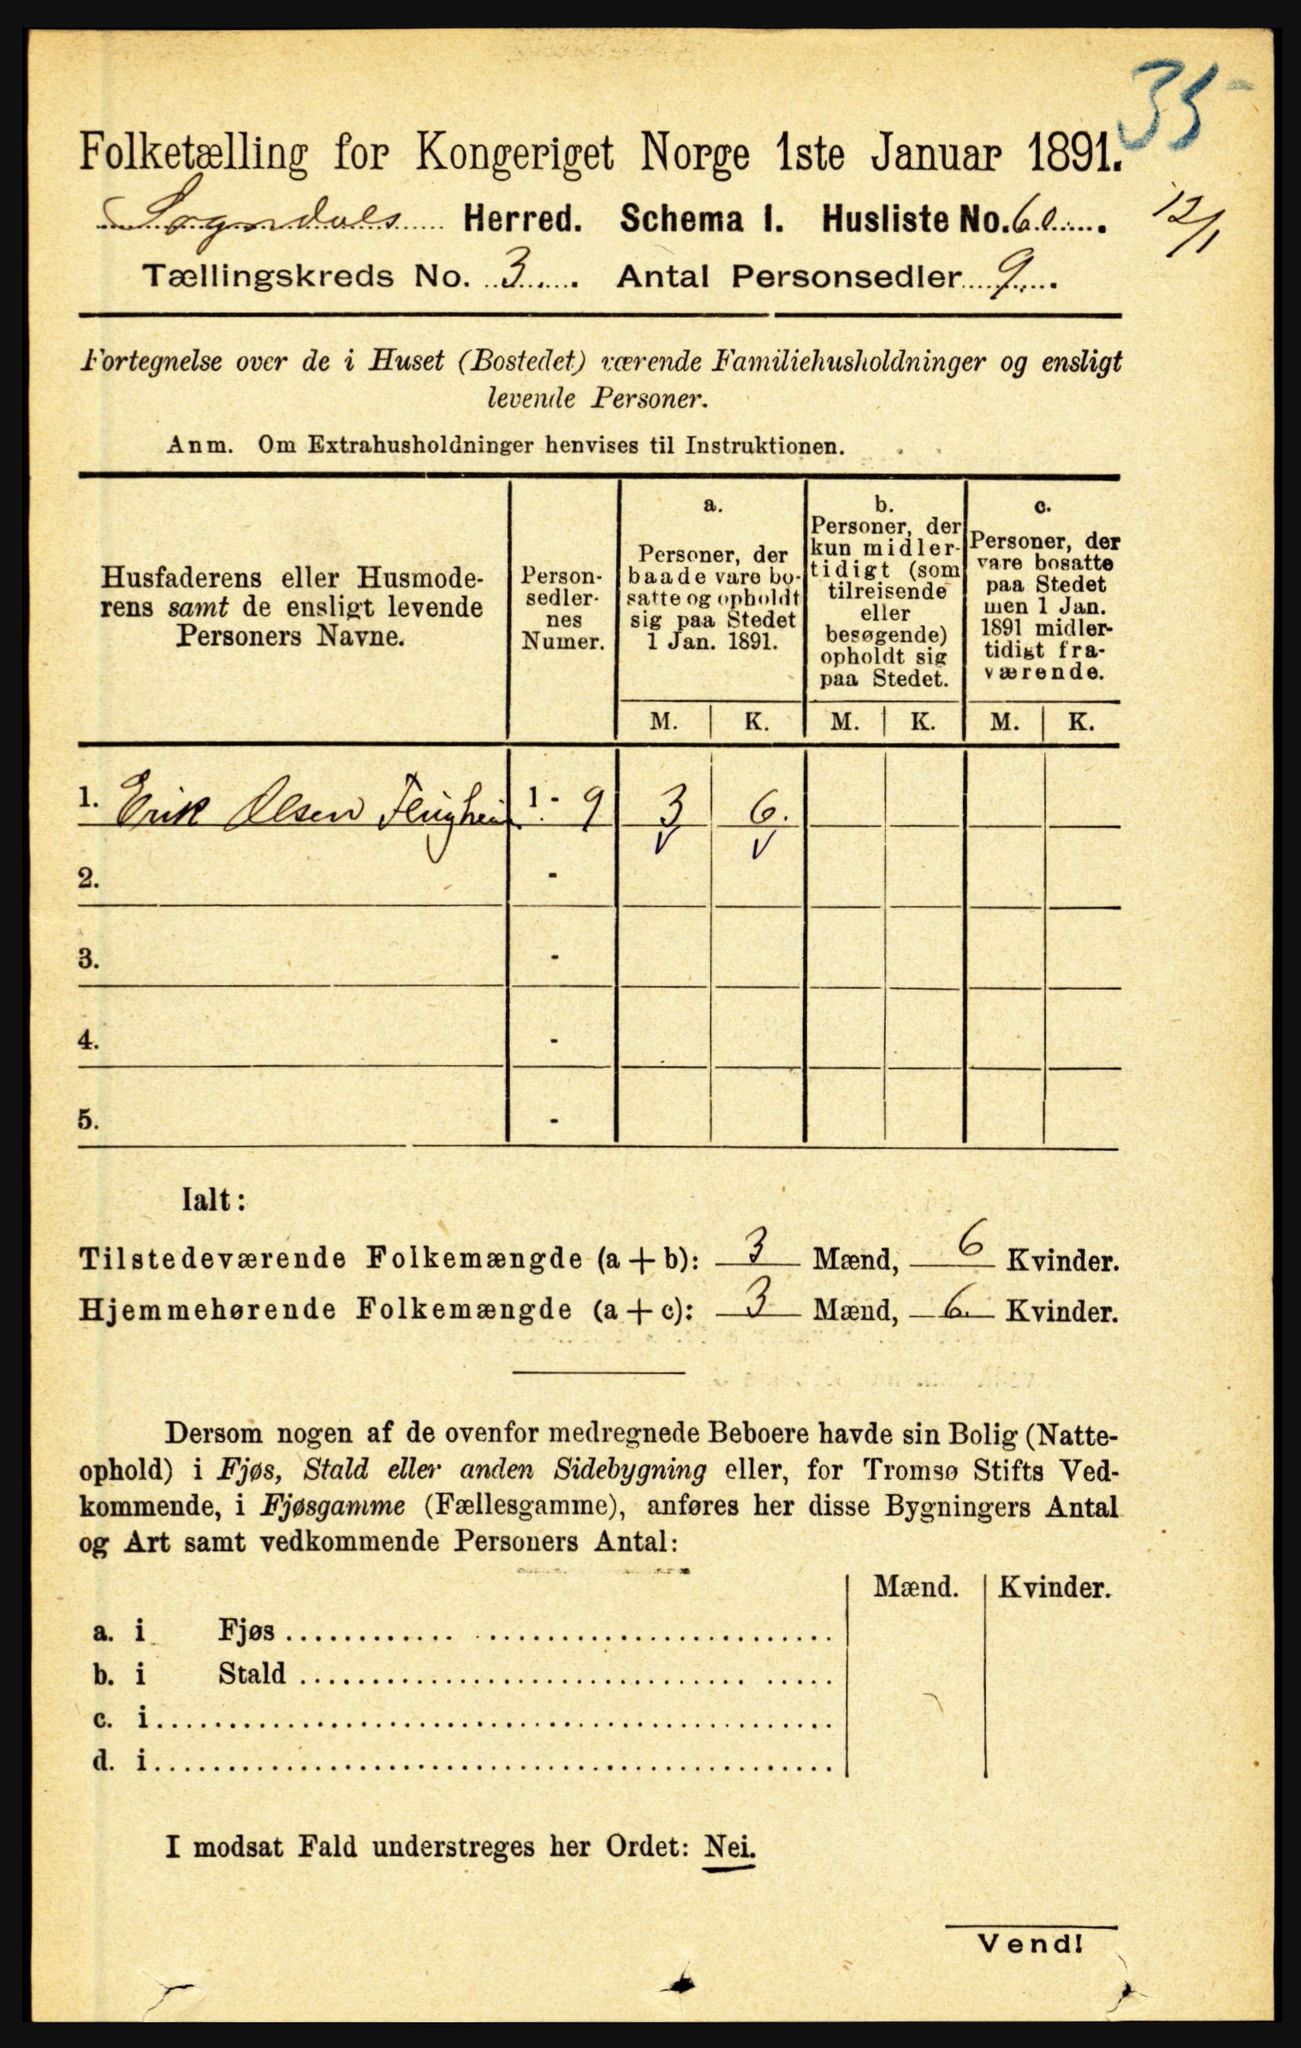 35
Folketælling for Kongeriget Norge 1ste Januar 1891.
Sogndals Herred. Schema I. Husliste No. 60.
12/1
Tællingskreds No. 3. Antal Personsedler 9.
Fortegnelse over de i Huset (Bostedet) værende Familiehusholdninger og ensligt
levende Personer.
Anm. Om Extrahusholdninger henvises til Instruktionen.
Husfaderens eller Husmode-
rens samt de ensligt levende
Personers Navne.
Person-
sedler-
nes
Numer.
a.
Personer, der
baade vare bo-
satte og opholdt
sig paa Stedet
1 Jan. 1891.
b.
Personer, der
kun midler-
tidigt (som
tilreisende
eller
besøgende)
opholdt sig
paa Stedet.
c.
Personer, der
vare bosatte
paa Stedet
men 1 Jan.
1891 midler-
tidigt fra-
værende.
M. K. M. K. M. K.
1. Erik Olsen 1 - 9 3 6.
2. -
3. -
4. -
5. -
Ialt:
Tilstedeværende Folkemængde (a + b): 3 Mænd, 6 Kvinder.
Hjemmehørende Folkemængde (a + c): 3 Mænd, 6. Kvinder.
Dersom nogen af de ovenfor medregnede Beboere havde sin Bolig (Natte-
ophold) i Fjøs, Stald eller anden Sidebygning eller, for Tromsø Stifts Ved-
kommende, i Fjøsgamme (Fællesgamme), anføres her disse Bygningers Antal
og Art samt vedkommende Personers Antal:
Mænd. Kvinder.
a. i Fjøs
b. i Stald
c. i
d. i
I modsat Fald understreges her Ordet: Nei.
Vend!